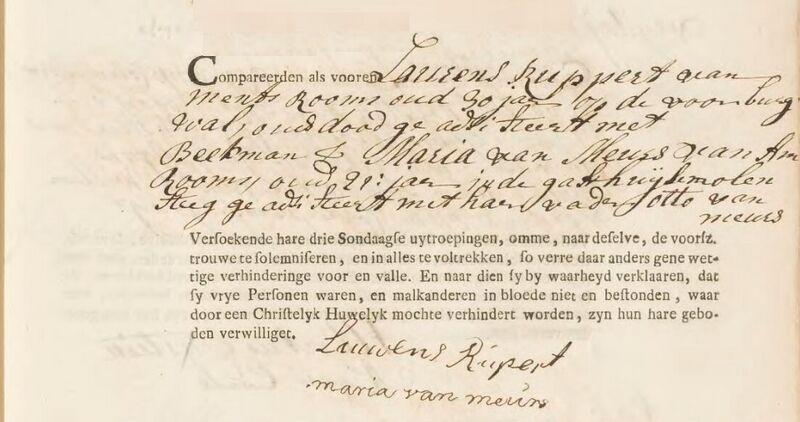 Compareerden als vooren Laurens Ruppert van
ments Rooms oud 30 jar op de voorburg
wal, ouds dood ge adsisteert met
Beekman & Maria van Meurs van Am
Rooms oud 21: jar in de gasthuijsmolen
steeg ge adsisteert met haer vader otto van
meurs
Versoekende hare drie Sondaagse uytroepingen, omme, naar deselve, de voorsz.
trouwe te solemniseren, en in alles te voltrekken, so verre daar anders gene wet-
tige verhinderinge voor en valle. En naar dien sy by waarheyd verklaaren, dat
sy vrye Personen waren, en malkanderen in bloede niet en bestonden, waar
door een Christelyk Huwelyk mochte verhindert worden, zyn hun hare gebo-
den verwilliget.
Lauwens Rupert
maria van meurs